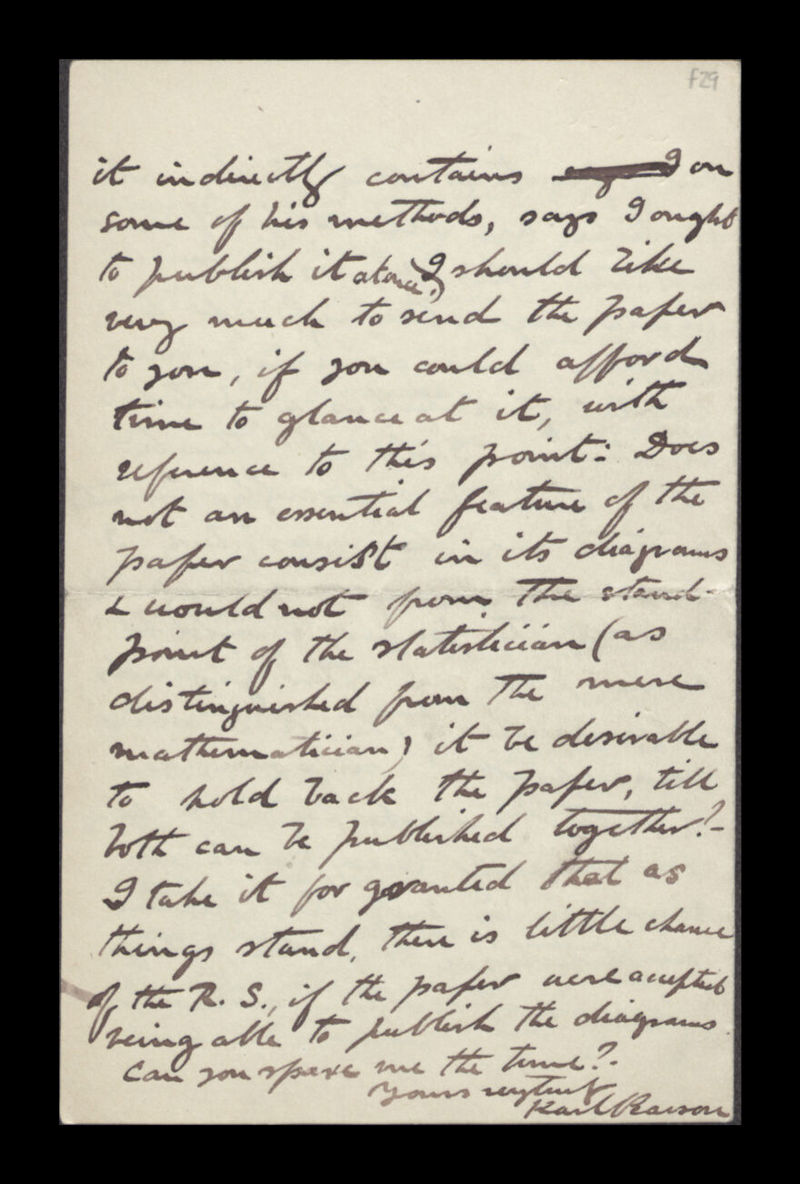 f29
it indirectly contains on
some of his methods, says I ought
to publish it at once, I should like
very much to send the paper
to you, if you could afford
time to glance at it, with
reference to this point: Does
not an essential feature of the
paper consist in its diagrams
& would not from the stand-
point of the statistician (as
distinguished from the mere
mathematician) it be desirable
to hold back the paper, till
both can be published together?-
I take it for granted that as
things stand, there is little chance
of the R. S., if the paper were accepted
being able to publish the diagrams.
Can you spare me the time?-
Yours very truly
Karl Pearson